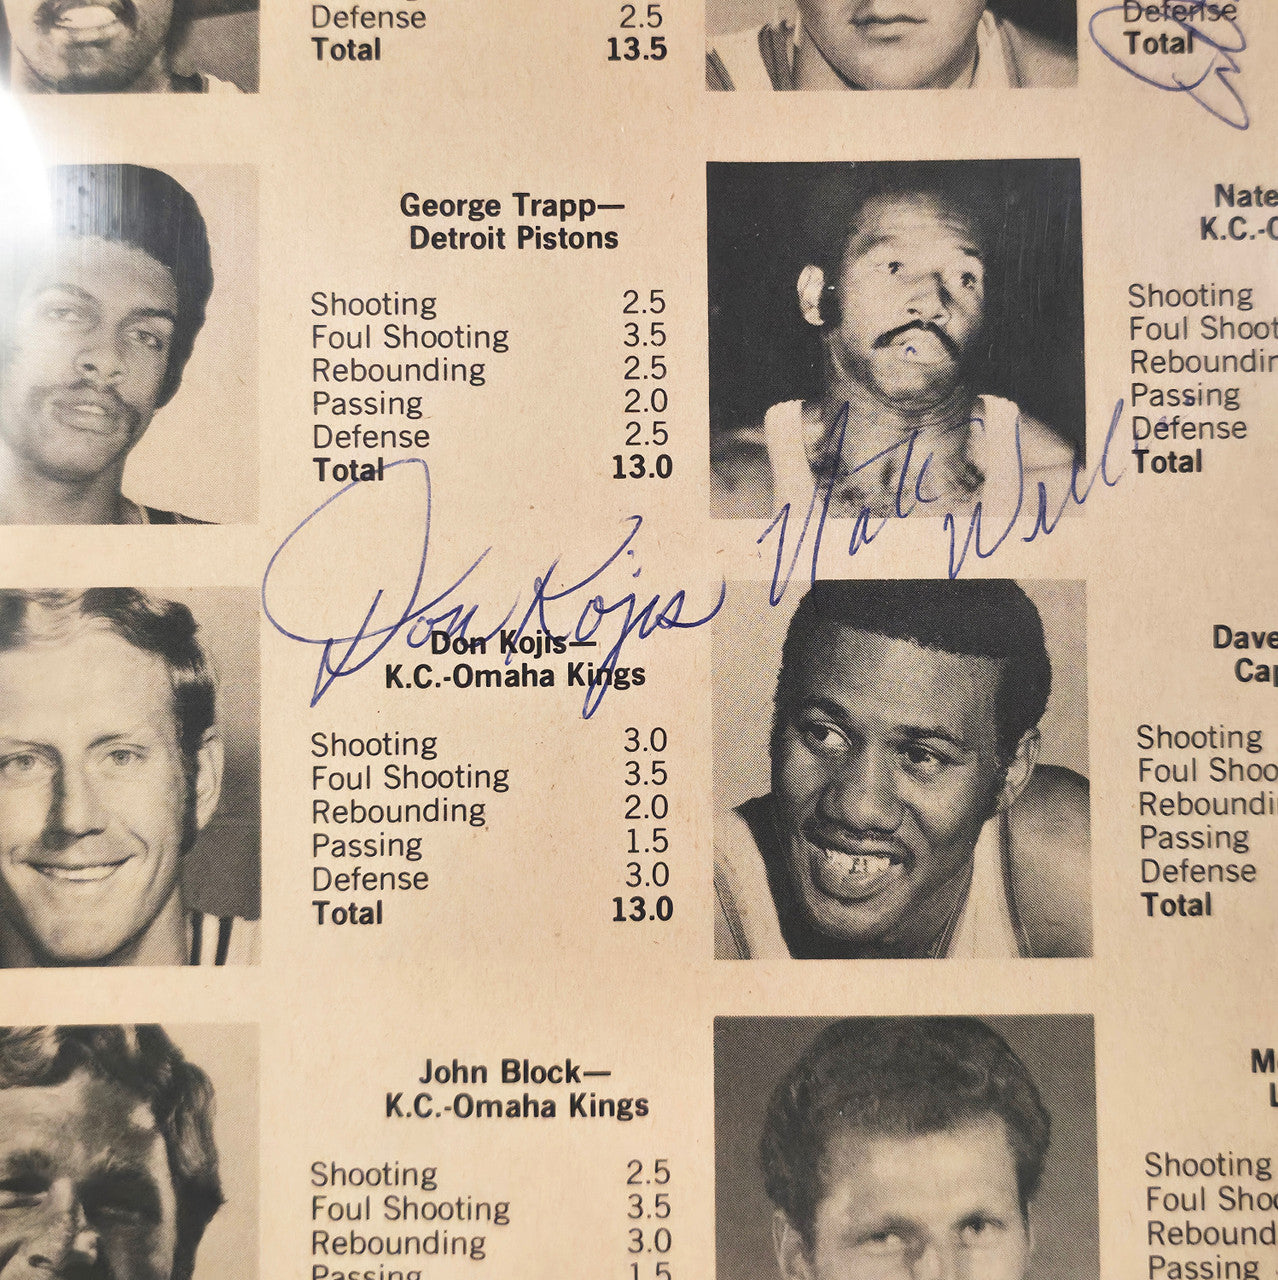 Defense 2.5
Total 13.5
Defense
Total
George Trapp—
Detroit Pistons
Shooting 2.5
Foul Shooting 3.5
Rebounding 2.5
Passing 2.0
Defense 2.5
Total 13.0
Nate
K.C.-
Shooting
Foul Shoot
Reboundin
Passing
Defense
Total
Don Kojis
Nate Will
Don Kojis—
K.C.-Omaha Kings
Shooting 3.0
Foul Shooting 3.5
Rebounding 2.0
Passing 1.5
Defense 3.0
Total 13.0
Dave
Cap
Shooting
Foul Shoo
Reboundi
Passing
Defense
Total
John Block—
K.C.-Omaha Kings
Shooting 2.5
Foul Shooting 3.5
Rebounding 3.0
Passing 1.5
Shooting
Foul Shoo
Rebound
Passing